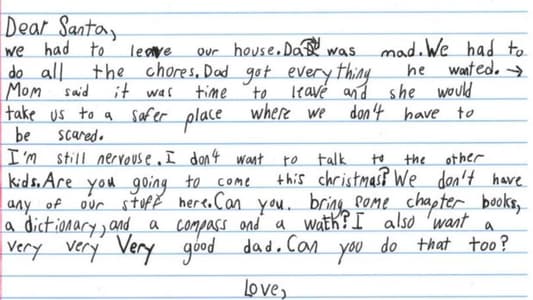 Dear Santa,
we had to leave our house.Dad was mad.We had to
do all the chores.Dad got everything he wanted.→
Mom said it was time to leave and she would
take us to a safer place where we don't have to
be scared.
I'm still nervouse.I don't want to talk to the other
kids.Are you going to come this christmas? We don't have
any of our stuff here.Can you bring some chapter books,
a dictionary,and a compass and a wath?I also want a
very very Very good dad.Can you do that too?
Love,